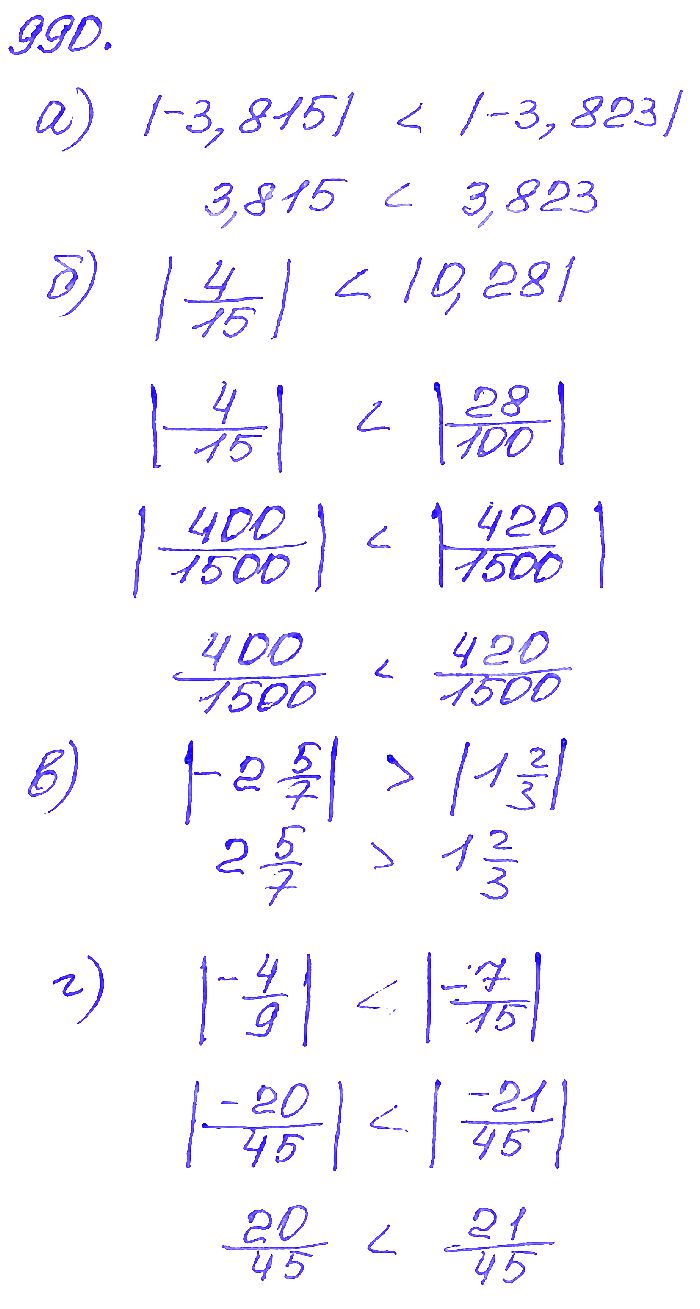 990.
а) |-3,815| < |-3,823|
3,815 < 3,823
б) |4/15| < |0,28|
|4/15| < |28/100|
|400/1500| < |420/1500|
400/1500 < 420/1500
в) |-2 5/7| > |1 2/3|
2 5/7 > 1 2/3
г) |-4/9| < |-7/15|
|-20/45| < |-21/45|
20/45 < 21/45